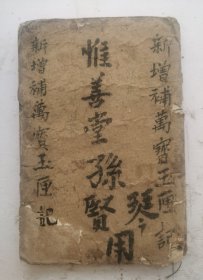 新增補萬寶玉匣記
琴
惟善堂孫賢用
新增補萬寳玉匣記